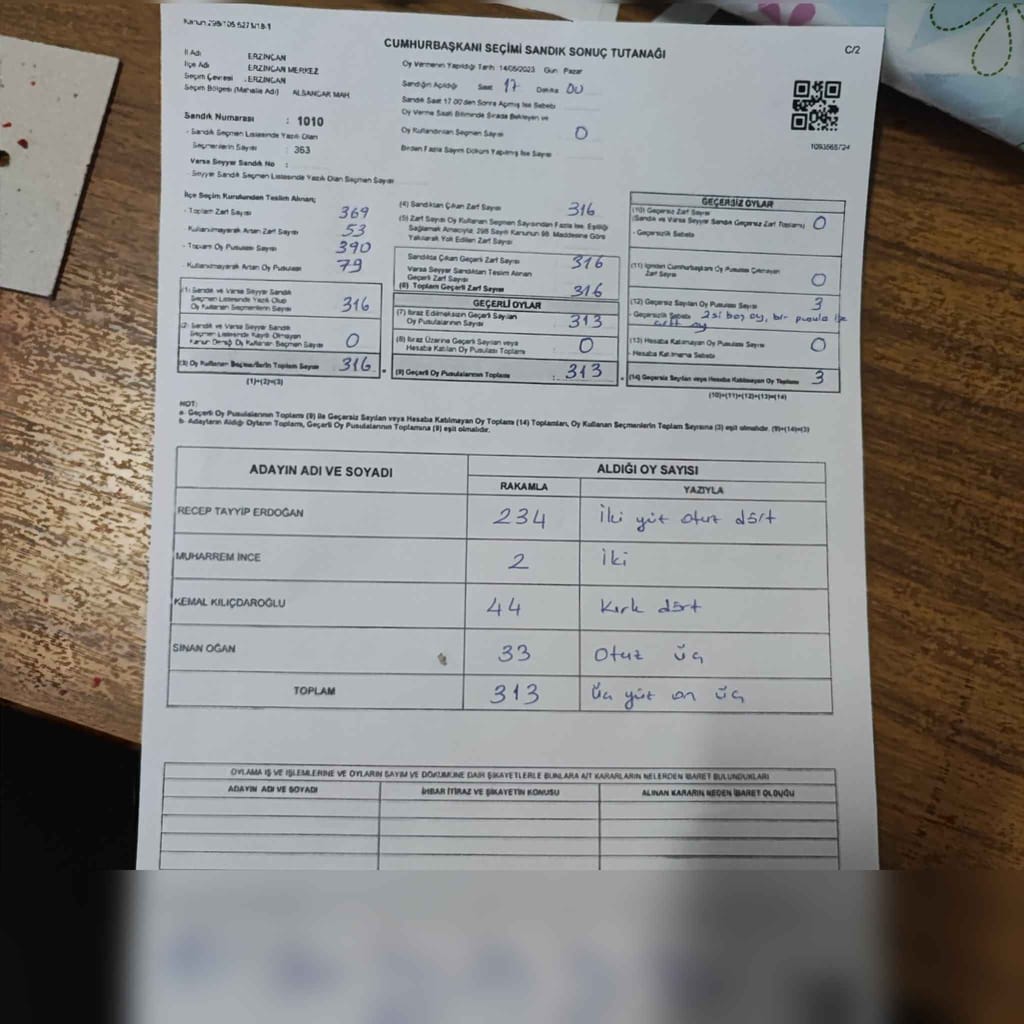 C/2
CUMHURBAŞKANI SEÇİMİ SANDIK SONUÇ TUTANAĞI
İl Adı ERZİNCAN
İlçe Adı ERZİNCAN MERKEZ
Seçim Çevresi : ERZİNCAN
Seçim Bölgesi (Mahalle Adı) ALSANCAK MAH.
Sandık Numarası : 1010
- Sandık Seçmen Listesinde Yazılı Olan
Seçmenlerin Sayısı : 363
Varsa Seyyar Sandık No :
- Seyyar Sandık Seçmen Listesinde Yazılı Olan Seçmen Sayısı
Oy Vermenin Yapıldığı Tarih 14/05/2023 Gün Pazar
Sandığın Açıldığı Saat 17 Dakika 00
Sandık Saat 17.00'den Sonra Açmış İse Sebebi
Oy Verme Saati Bitiminde Sırada Bekleyen ve
Oy Kullandırılan Seçmen Sayısı 0
Birden Fazla Sayım Döküm Yapılmış İse Sayısı
İlçe Seçim Kurulundan Teslim Alınan;
- Toplam Zarf Sayısı 369
- Kullanılmayarak Artan Zarf Sayısı 53
- Toplam Oy Pusulası Sayısı 390
- Kullanılmayarak Artan Oy Pusulası 79
(1) Sandık ve Varsa Seyyar Sandık
Seçmen Listesinde Yazılı Olup
Oy Kullanan Seçmenlerin Sayısı 316
(2) Sandık ve Varsa Seyyar Sandık
Seçmen Listesinde Kayıtlı Olmayan
Kanun Gereği Oy Kullanan Seçmen Sayısı 0
(3) Oy Kullanan Seçmenlerin Toplam Sayısı 316
(1)+(2)=(3)
(4) Sandıktan Çıkan Zarf Sayısı 316
(5) Zarf Sayısı Oy Kullanan Seçmen Sayısından Fazla İse, Eşitliği
Sağlamak Amacıyla; 298 Sayılı Kanunun 98. Maddesine Göre
Yakılarak Yok Edilen Zarf Sayısı
Sandıkta Çıkan Geçerli Zarf Sayısı 316
Varsa Seyyar Sandıktan Teslim Alınan
Geçerli Zarf Sayısı
(6) Toplam Geçerli Zarf Sayısı 316
GEÇERLİ OYLAR
(7) İtiraz Edilmeksizin Geçerli Sayılan
Oy Pusulalarının Sayısı 313
(8) İtiraz Üzerine Geçerli Sayılan veya
Hesaba Katılan Oy Pusulası Toplamı 0
(9) Geçerli Oy Pusulalarının Toplamı : 313
GEÇERSİZ OYLAR
(10) Geçersiz Zarf Sayısı
(Sandık ve Varsa Seyyar Sandık Geçersiz Zarf Toplamı) 0
- Geçersizlik Sebebi
(11) İçinden Cumhurbaşkanı Oy Pusulası Çıkmayan
Zarf Sayısı 0
(12) Geçersiz Sayılan Oy Pusulası Sayısı 3
- Geçersizlik Sebebi 2si boş oy, bir pusula ise
çift oy
(13) Hesaba Katılmayan Oy Pusulası Sayısı 0
- Hesaba Katılmama Sebebi
(14) Geçersiz Sayılan veya Hesaba Katılmayan Oy Toplamı 3
(10)+(11)+(12)+(13)=(14)
NOT:
a- Geçerli Oy Pusulalarının Toplamı (9) ile Geçersiz Sayılan veya Hesaba Katılmayan Oy Toplamı (14) Toplamları, Oy Kullanan Seçmenlerin Toplam Sayısına (3) eşit olmalıdır. (9)+(14)=(3)
b- Adayların Aldığı Oyların Toplamı, Geçerli Oy Pusulalarının Toplamına (9) eşit olmalıdır.
ADAYIN ADI VE SOYADI ALDIĞI OY SAYISI
RAKAMLA YAZIYLA
RECEP TAYYİP ERDOĞAN 234 İki yüz otuz dört
MUHARREM İNCE 2 İki
KEMAL KILIÇDAROĞLU 44 Kırk dört
SİNAN OĞAN 33 Otuz üç
TOPLAM 313 Üç yüz on üç
OYLAMA İŞ VE İŞLEMLERİNE VE OYLARIN SAYIM VE DÖKÜMÜNE DAİR ŞİKAYETLERLE BUNLARA AİT KARARLARIN NELERDEN İBARET BULUNDUKLARI
ADAYIN ADI VE SOYADI İHBAR İTİRAZ VE ŞİKAYETİN KONUSU ALINAN KARARIN NEDEN İBARET OLDUĞU